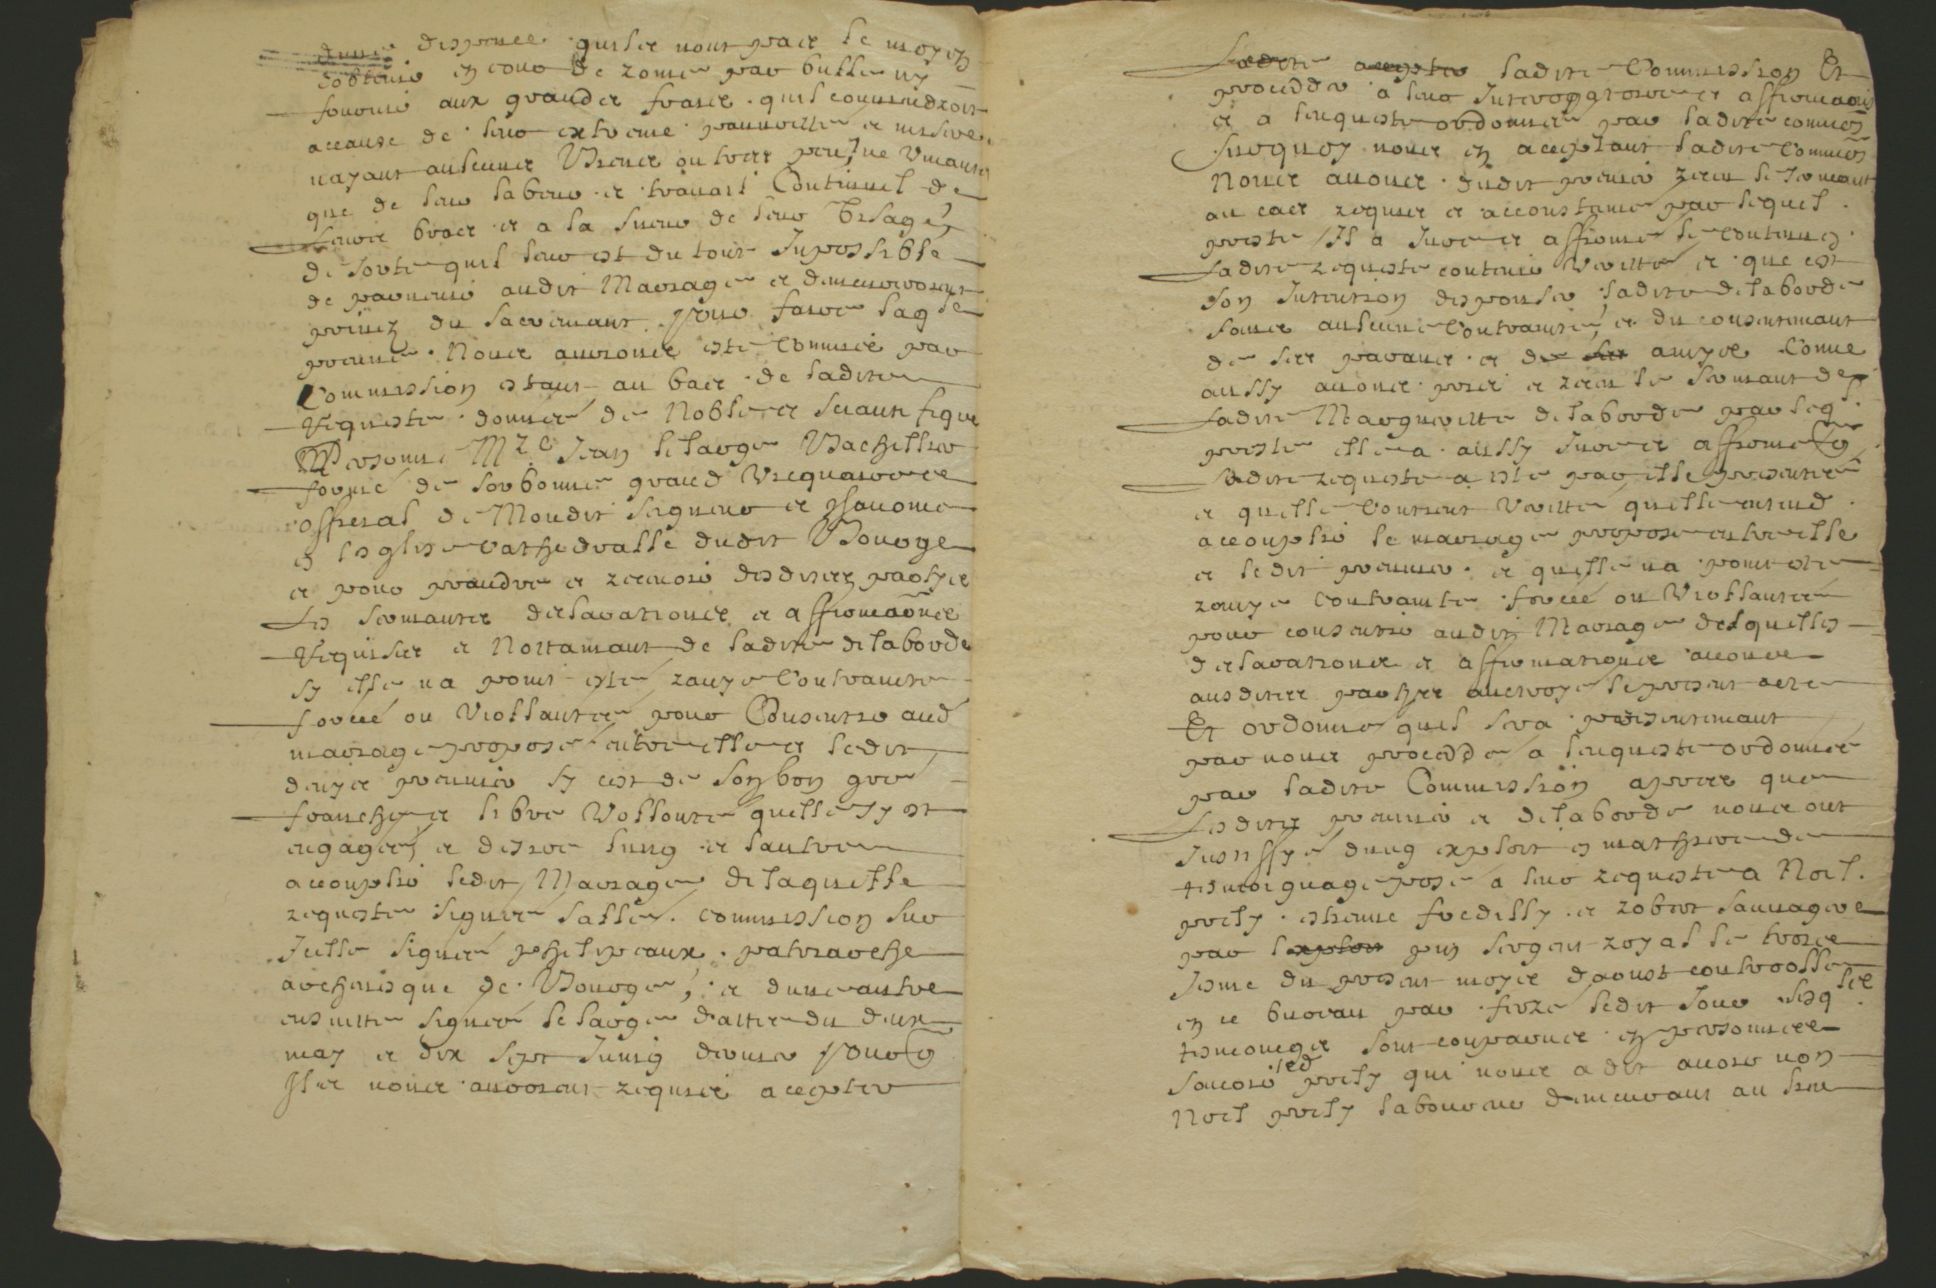 dune dispance quils nont pas le moyen
dobtenir en cour de rome par bulle ny
fournir aux grandes fraies quil conviendroit
a cause de leur extreme pauvrette et misere
nayant aulcuns biens ou tres peu, ne vivants
que de leur labeur et travail Continuel de
leurs bras et a la sueur de leur visage,
de sorte quil leur est du tout Inpossible
de parvenir audit Mariage et
du sacremant, pour faire laqlle
preuve Nous aurions esté Commis par
Commission estant au bas de ladite
Requeste donnée de Noble et scianti fique
Personne Mre Jean le large Bachellier
formé de sorbonne grand Vicquaire et
offisial de Mondit seigneur et chanoine
en lesglise cathedralle dudit Bourges
et pour prandre et recevoir desdites partyes
les sermants desclarations et affirmaōns
Requises et Nottamant de ladite delaborde
sy elle na point esté ravye Contrainte
forcée ou viollantée pour Consentir aud
mariage proposé entre elle et ledit
denys premier sy cest de son bon gré
franche et libre vollonté quelle sy est
engagée, et desire lung et laultre
acconplir ledit Mariage de laquelle
requeste signée salle commission sur
Icelle signée phelipeaux patriarche
archevesque de Bourges, et dune aultre
ensuitte signée le large dattée du deux
may et dix sept Juing dernier pour q
Ils nous auroient requis accepter
ladite accepter ladite Commission Et
procedder a leur Interroggatoire et affirmaōns
et a lenqueste ordonnée par ladite commion
Surquoy nous en acceptant ladite Commion
Nous avons dudit premier receu le sermant
au cas requis et accoustumé par lequel
presté Il a Juré et affirmé le contenu en
ladite requeste contenir veritté et que cest
son Intention despouser ladite delaborde
sans aulcune Contrainte, et du consentement
de ses parans et de ses amyes Comme
aussy avons pris et receu le sermant de
ladite Margueritte delaborde par leql
presté elle a aussy Juré et affirmé q
ladite requeste a esté par elle presentée
et quelle Contient veritté quelle entend
acconplir le mariage proposé entre elle
et ledit premier et quelle na point esté
ravye contrainte forcée ou viollantée
pour consentir audit Mariage desquelles
desclarations et affirmations avons
ausdites partyes auctroyé le present acte
Et ordonné quil sera presentemant
par nous proceddé a lenqueste ordonnée
par ladite Commission apres que
lesdits premier et delaborde nous ont
Justiffyé dung exploit en mathiere de
tesmoignage posé a leur requeste a Noel
prely estienne fredilly et robert sauvagere
par lexploit pin sergent royal le trois
Jesme du present moys daoust controollé
en ce bureau par fizé ledit Jour lesqls
tesmoings sont conparus en personnes
scavoir led prely qui nous a dit avoir non
Noel prely laboureur demeurant au lieu